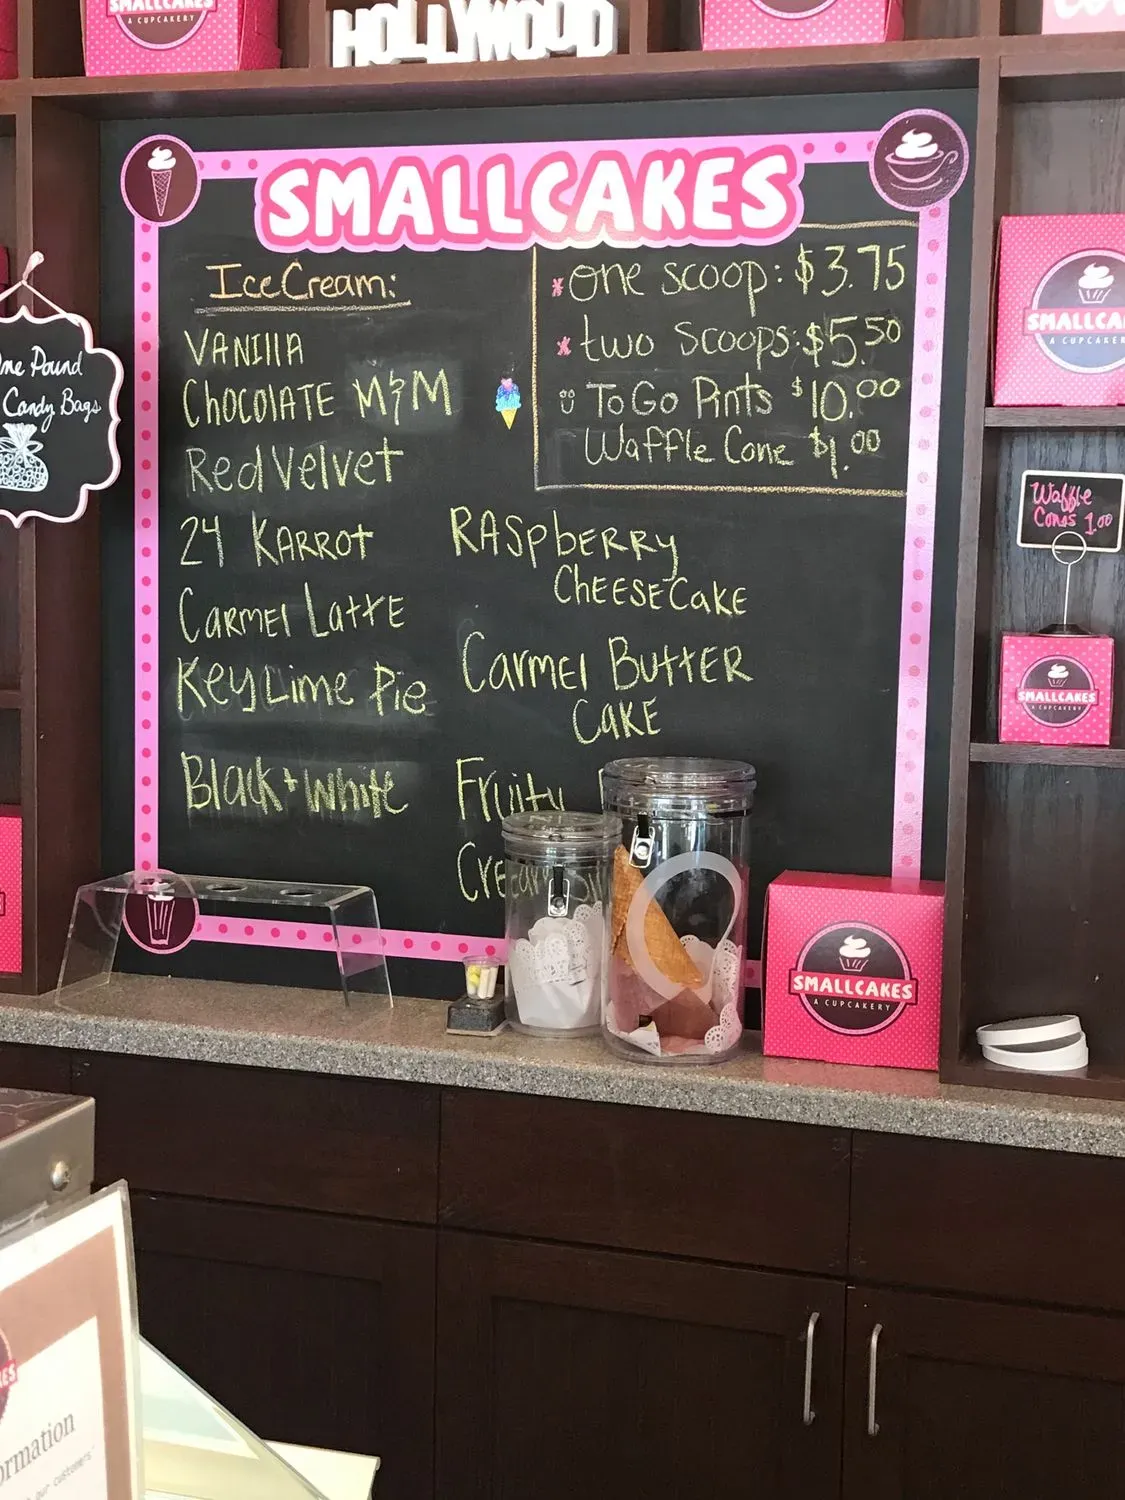 SMALLCAKES
A CUPCAKERY
HOLLYWOOD
SMALLCAKES
Ice Cream:
VANIllA
CHOCOlATE M&M
Red Velvet
24 KARROT
CARMEl LATTE
Key Lime Pie
Black + White
RASpbERRy
CHEESECAKE
CARMEl BUTTER
CAKE
Fruity
one scoop: $3.75
two scoops: $5.50
To Go Pints $10.00
Waffle Cone $1.00
Pound
Candy Bags
SMALLCA
A CUPCAKER
Waffle
Cones 1.00
SMALLCAKES
A CUPCAKERY
SMALLCAKES
A CUPCAKERY
ormation
our customers